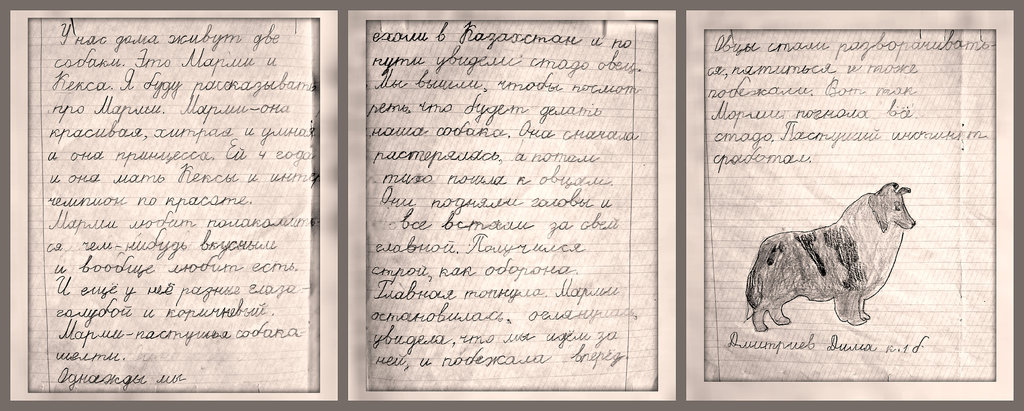 У нас дома живут две
собаки. Это Марли и
Кекса. Я буду рассказывать
про Марли. Марли-она
красивая, хитрая и умная
а она принцесса. Ей 4 года
и она мать Кексы и интер
чемпион по красоте.
Марли любит полакомить-
ся, чем-нибудь вкусным
и вообще любит есть.
И ещё у неё разные глаза-
голубой и коричневый.
Марли-пастушья собака
шелти.
Однажды мы
ехали в Казахстан и по
пути увидели стадо овец.
Мы вышли, чтобы посмот
реть что будет делать
наша собака. Она сначала
растерялась, а потом
тихо пошла к овцам.
Они подняли головы и
все встали за своей
главной. Получился
строй, как оборона.
Главная топнула. Марли
остановилась, оглянулась,
увидела, что мы идём за
ней, и побежала вперёд
Овцы стали разворачивать-
ся, пятиться и тоже
побежали. Вот так
Марли погнала всё
стадо. Пастуший инстинкт
сработал.
Дмитриев Дима к.1б